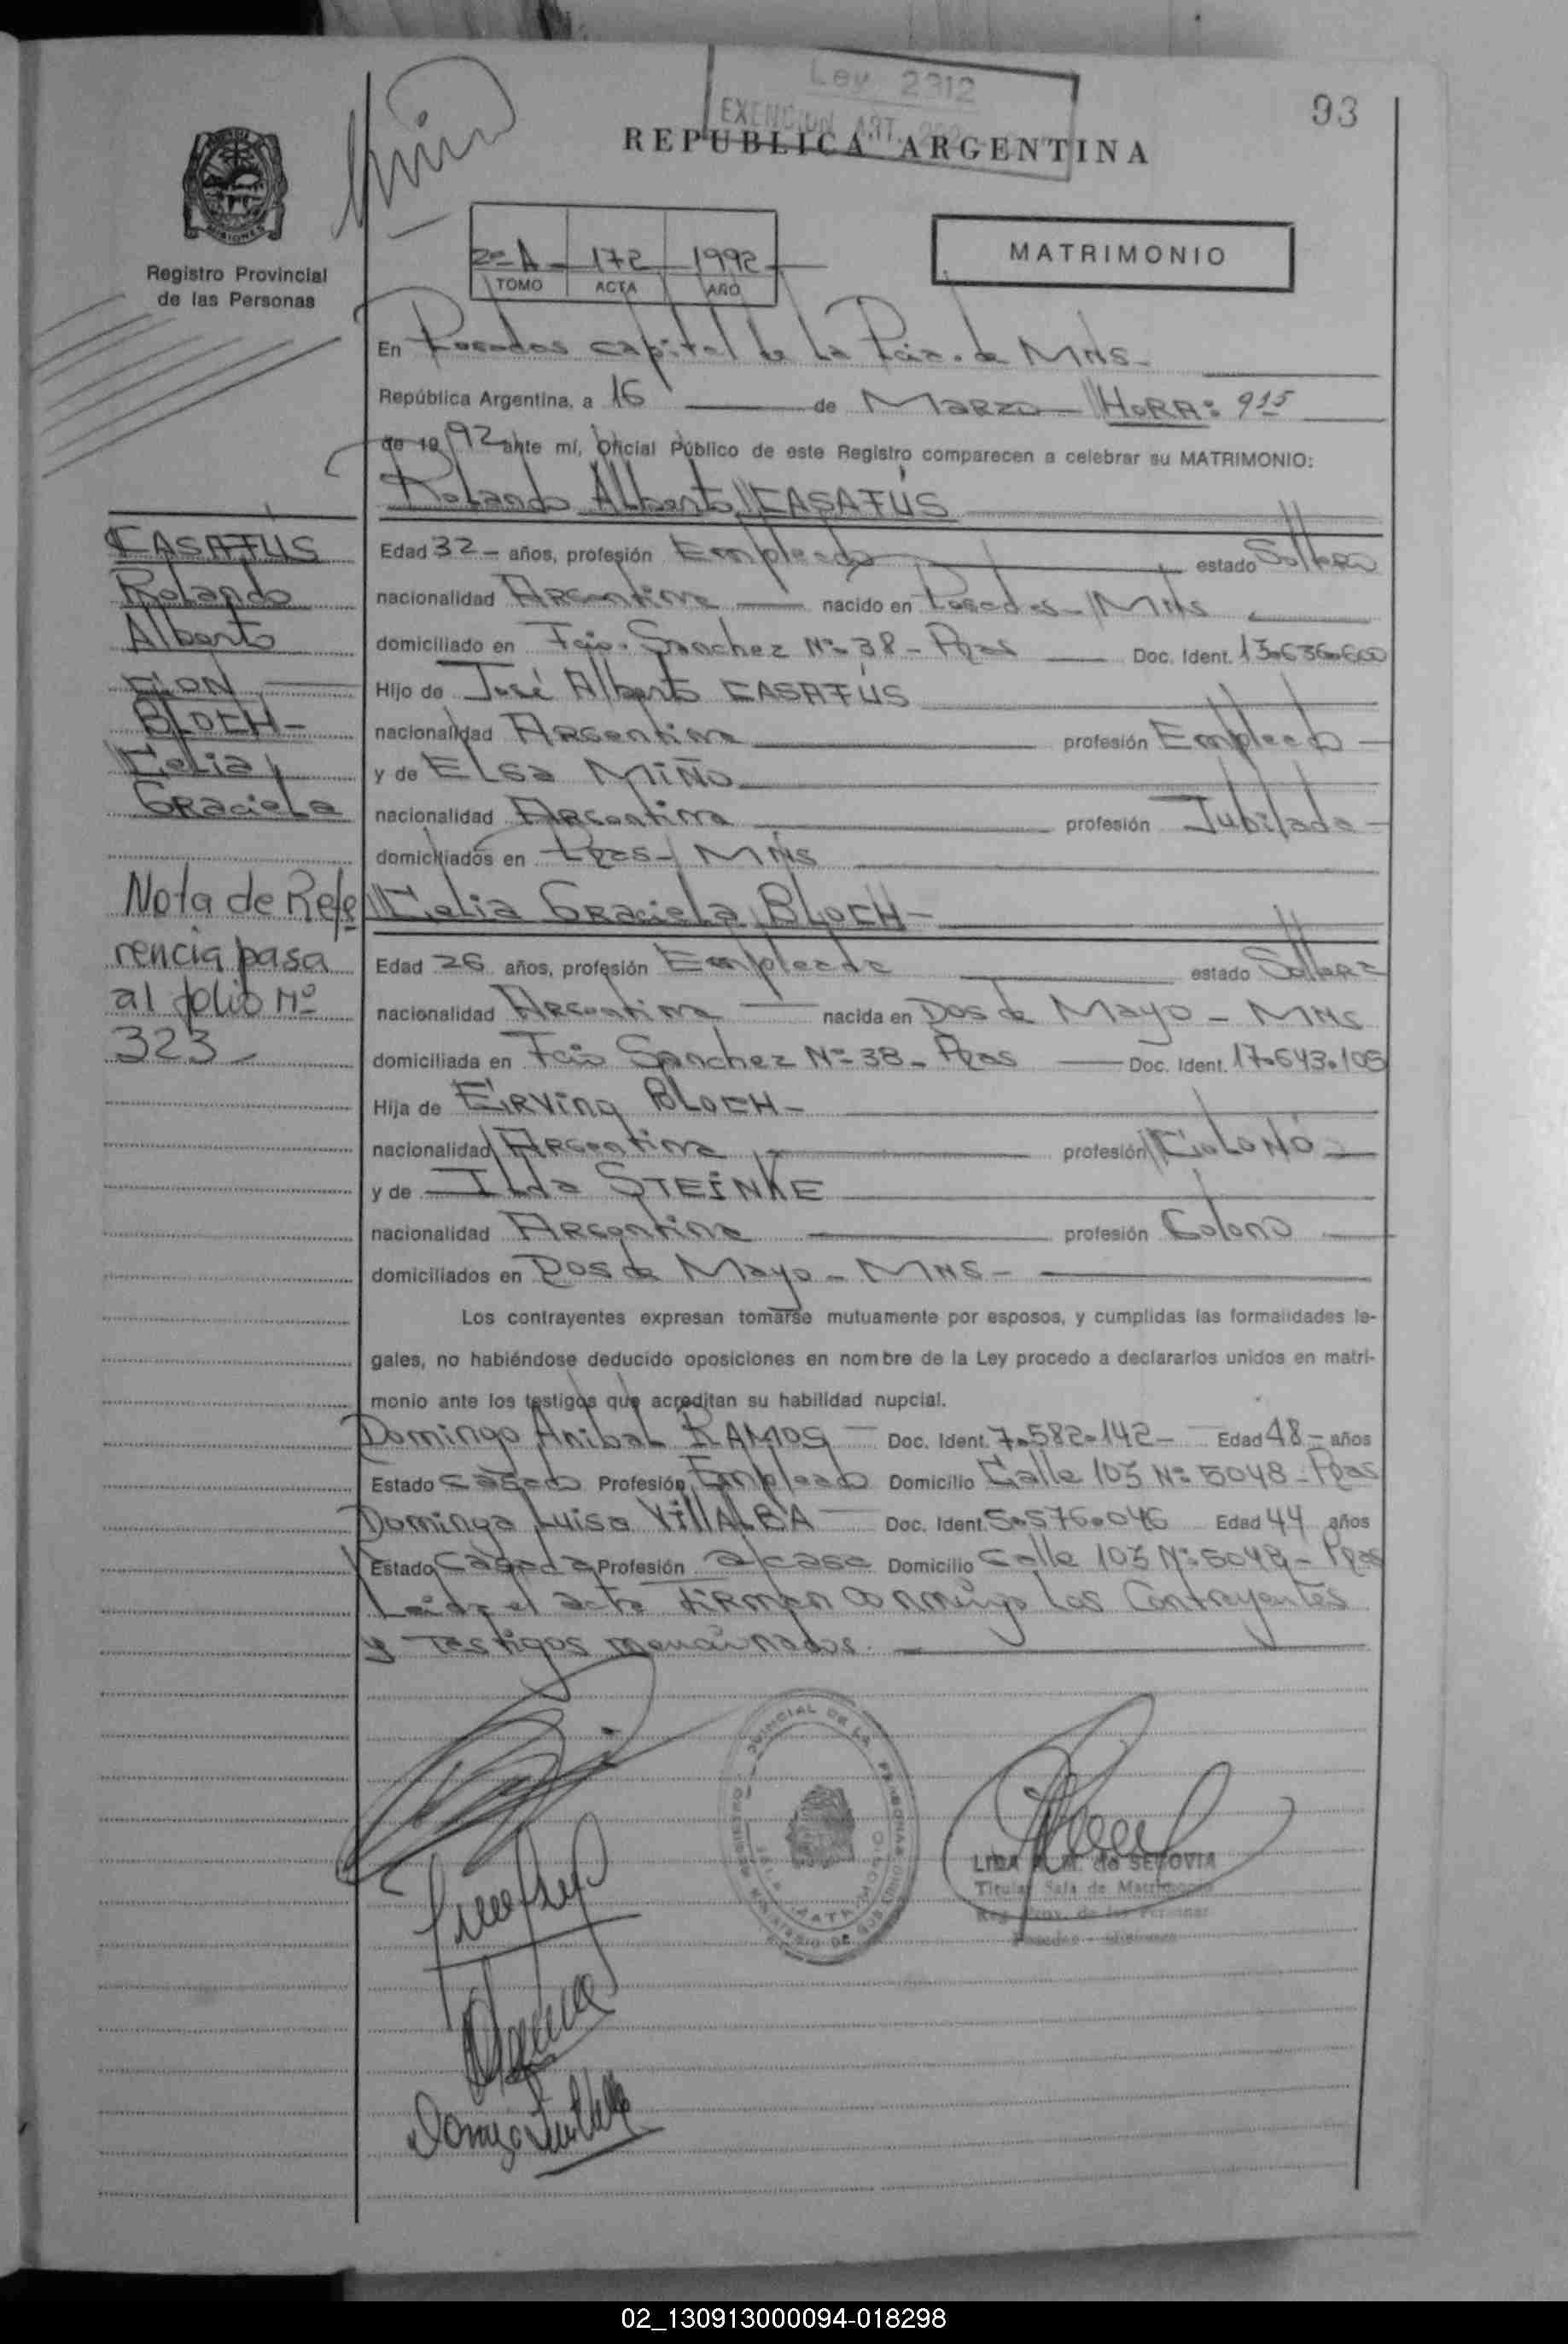 Ley 2312
EXENCION ART.
93
REPUBLICA ARGENTINA
MISIONES
Registro Provincial
de las Personas
2º A 172 1992
TOMO ACTA AÑO
MATRIMONIO
En Posadas capital de la Pcia. de MNS-
República Argentina, a 16 de Marzo HORA: 9 15
de 19 92 ante mí, Oficial Público de este Registro comparecen a celebrar su MATRIMONIO:
Rolando Alberto CASAFÚS
CASAFUS
Rolando
Alberto
CON
BLOCH-
Celia
Graciela
Edad 32- años, profesión Empleado estado Soltero
nacionalidad Argentina nacido en Posadas-MNS
domiciliado en Fcio. Sanchez Nº 38- Pdas Doc. Ident. 13.636.600
Hijo de José Alberto CASAFÚS
nacionalidad Argentina profesión Empleado
y de Elsa MIÑO
nacionalidad Argentina profesión Jubilada
domiciliados en Pdas- MNS
Nota de Refe
rencia pasa
al folio Nº
323-
Celia Graciela BLOCH-
Edad 26 años, profesión Empleada estado Soltera
nacionalidad Argentina nacida en Dos de Mayo- MNS
domiciliada en Fcio Sanchez Nº 38- Pdas Doc. Ident. 17.643.105
Hija de Eirving BLOCH-
nacionalidad Argentina profesión Colono
y de Ilda STEINKE
nacionalidad Argentina profesión Colono
domiciliados en Dos de Mayo- MNS-
Los contrayentes expresan tomarse mutuamente por esposos, y cumplidas las formalidades le-
gales, no habiéndose deducido oposiciones en nombre de la Ley procedo a declararlos unidos en matri-
monio ante los testigos que acreditan su habilidad nupcial.
Domingo Anibal RAMOS Doc. Ident. 7.582.142- Edad 48- años
Estado Casado Profesión Empleado Domicilio Calle 103 Nº 5048- Pdas
Dominga Luisa VILLALBA Doc. Ident. 5.576.046 Edad 44 años
Estado Casada Profesión a/casa Domicilio Calle 103 Nº 5048- Pdas
Leida el acta firman conmigo los Contrayentes
y testigos mencionados.
LIDA M. de SEGOVIA
Titular Sala de Matrimonio
Reg. Prov. de las Personas
Posadas - Misiones
02_130913000094-018298